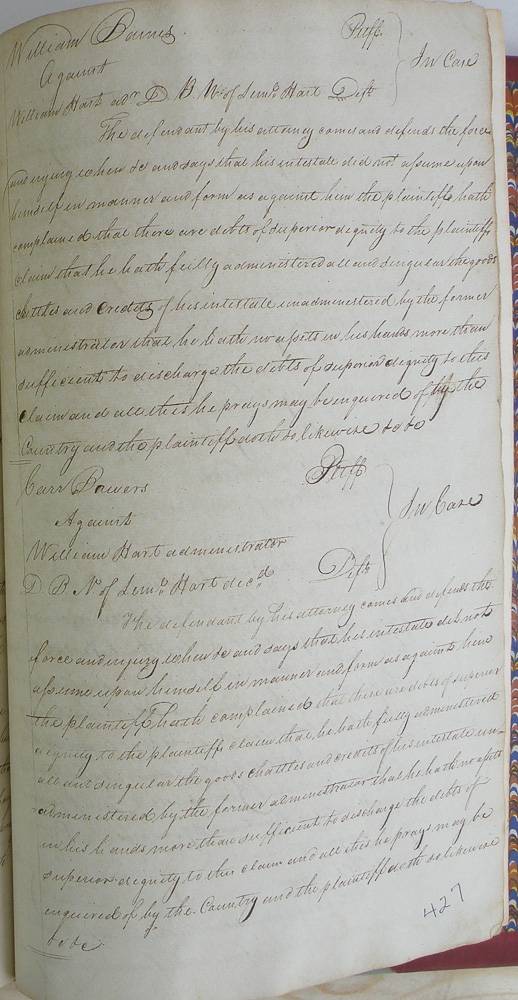 William Barnes Pltff
Against In Case
William Hart adr D B N of Lemo Hart Deft
The defendant by his attorney comes and defends the force
and injury when &c and says that his intestate did not assume upon
himself in manner and form as against him the plaintiff hath
complained that there are debts of superior dignity to the plaintiffs
claim that he hath fully administered all and singular the goods
chattles and credits of his intestate unadministered by the former
administrator that he hath no assets in his hands more than
sufficient to discharge the debts of superior dignity to this
claim and all this he prays may be enquired of by the
Country and the plaintiff doth so likewise &c &c
Carr Bowers Pltff
Against In Case
William Hart administrator
D B N of Lemo Hart decd Deft
The defendant by his attorney comes and defends the
force and injury when &c and says that his intestate did not
assume upon himself in manner and form as against him
the plaintiff hath complained that there are debts of superior
dignity to the plaintiffs claim that he hath fully administered
all and singular the goods chattles and credits of his intestate un-
administered by the former administrator that he hath no assets
in his hands more than sufficient to discharge the debts of
superior dignity to this claim and all this he prays may be
enquired of by the Country and the plaintiff doth so likewise
&c &c
427